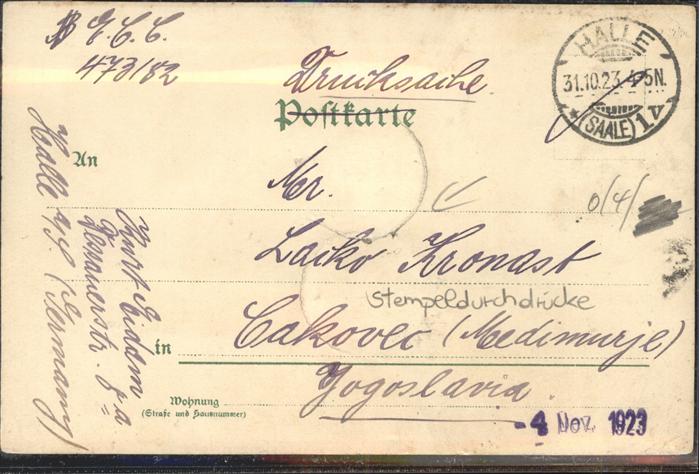 E. C. C.
473/82
Drucksache.
Postkarte
HALLE
31.10.23. 4-5N.
(SAALE) 1 v
An
Mr.
0/4/
Lacko Kronast
Stempeldurchdrücke
in Cakovec (Medimurje)
Wohnung
(Straße und Hausnummer)
Yogoslavia.
-4 Nov. 1923
Kurt
Halle a/S. (Germany)